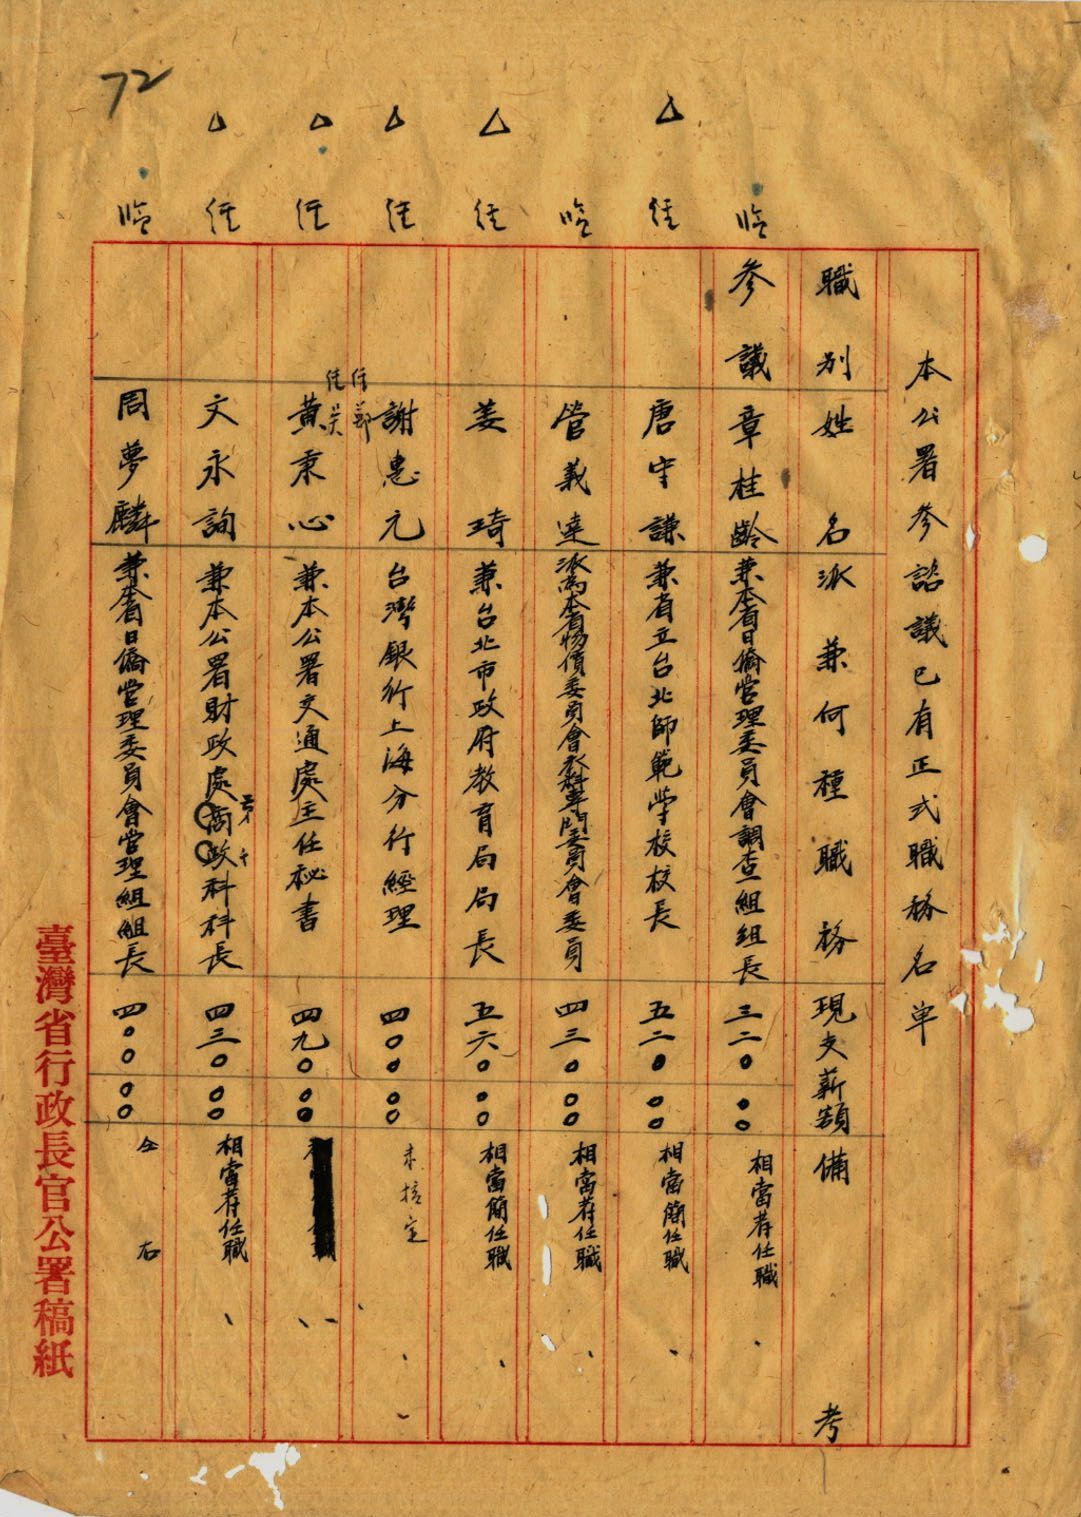 72
本公署參諮議已有正式職務名單
職別 姓名 派兼何種職務 現支薪額 備考
臨 參議 章桂齡 兼本省日僑管理委員會調查組組長 三二〇〇〇 相當荐任職
△ 任 唐守謙 兼省立台北師範學校校長 五二〇〇〇 相當簡任職
臨 管義達 派為本省物價委員會衣料專門委員會委員 四三〇〇〇 相當荐任職
△ 任 姜琦 兼台北市政府教育局局長 五六〇〇〇 相當簡任職
△ 任 謝惠元 台灣銀行上海分行經理 四〇〇〇〇 未核定
任 鄭
任 吳
△ 任 黃秉心 兼本公署交通處主任秘書 四九〇〇〇
△ 任 文永詢 兼本公署財政處商政科科長 四三〇〇〇 相當荐任職
臨 周夢麟 兼本省日僑管理委員會管理組組長 四〇〇〇〇 仝右
臺灣省行政長官公署稿紙